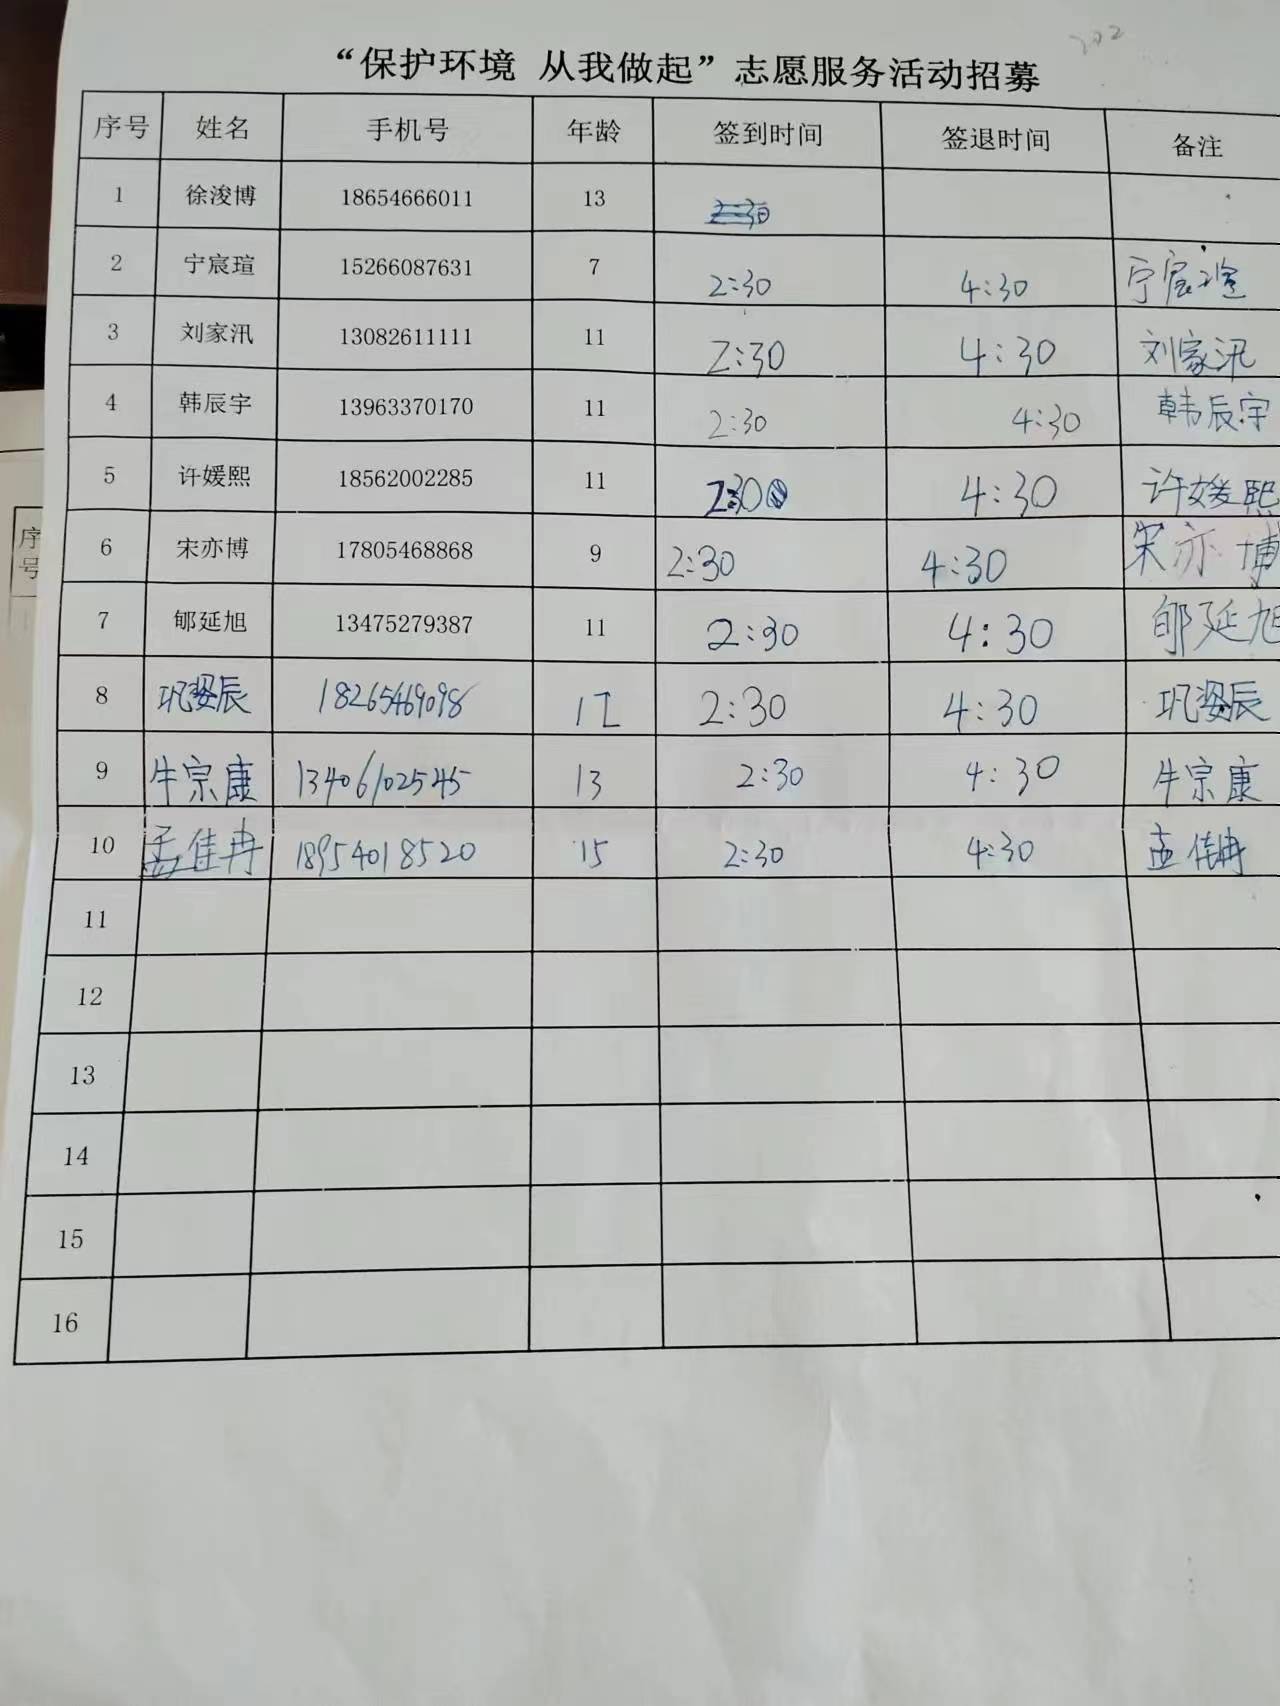 202
“保护环境 从我做起”志愿服务活动招募
序号 姓名 手机号 年龄 签到时间 签退时间 备注
1 徐浚博 18654666011 13 2:30
2 宁宸瑄 15266087631 7 2:30 4:30 宁宸瑄
3 刘家汛 13082611111 11 2:30 4:30 刘家汛
4 韩辰宇 13963370170 11 2:30 4:30 韩辰宇
5 许媛熙 18562002285 11 2:30 4:30 许媛熙
6 宋亦博 17805468868 9 2:30 4:30 宋亦博
7 郇延旭 13475279387 11 2:30 4:30 郇延旭
8 巩姿辰 18265469098 12 2:30 4:30 巩姿辰
9 牛宗康 13406102545 13 2:30 4:30 牛宗康
10 孟佳冉 18954018520 15 2:30 4:30 孟佳冉
11
12
13
14
15
16
序
号